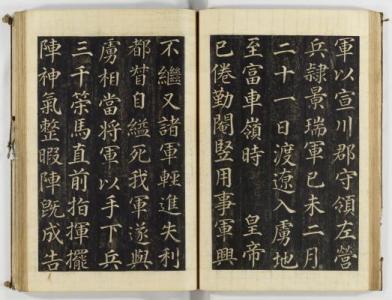 軍以宣川郡守領左營
兵隷景瑞軍已未二月
二十一日渡遼入虜地
至富車嶺時　皇帝
已倦勤閹竪用事軍興
不繼又諸軍輕進失利
都督自縊死我軍遂與
虜相當將軍以手下兵
三千策馬直前指揮擺
陣神氣整暇陣旣成告